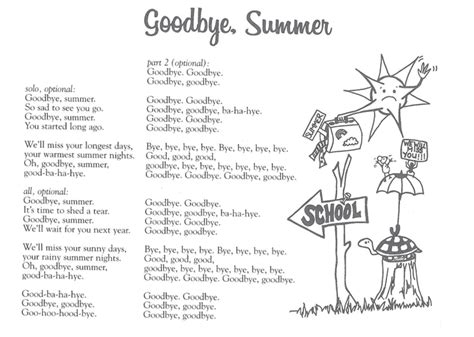 Goodbye, Summer
solo, optional:
Goodbye, summer.
So sad to see you go.
Goodbye, summer.
You started long ago.
We'll miss your longest days,
your warmest summer nights.
Oh, goodbye, summer,
good-ba-ha-hye.
all, optional:
Goodbye, summer.
It's time to shed a tear.
Goodbye, summer.
We'll wait for you next year.
We'll miss your sunny days,
your rainy summer nights.
Oh, goodbye, summer,
good-ba-ha-hye.
Good-ba-ha-hye.
Goodbye, goodbye.
Goo-hoo-hood-bye.
part 2 (optional):
Goodbye. Goodbye.
Goodbye, goodbye.
Goodbye. Goodbye.
Goodbye, goodbye, ba-ha-hye.
Goodbye. Goodbye.
Goodbye. Goodbye.
Bye, bye, bye, bye. Bye, bye, bye, bye.
Good, good, good,
goodbye, bye, bye, bye, bye, bye, bye.
Goodbye. Goodbye. Goodbye, goodbye.
Goodbye. Goodbye.
Goodbye, goodbye, ba-ha-hye.
Goodbye. Goodbye.
Goodbye. Goodbye.
Bye, bye, bye, bye. Bye, bye, bye, bye.
Good, good, good,
goodbye, bye, bye, bye, bye, bye, bye.
Goodbye. Goodbye. Goodbye, goodbye.
Goodbye. Goodbye.
Goodbye, goodbye.
Goodbye. Goodbye.
WE'LL
MISS
YOU!!!
SCHOOL